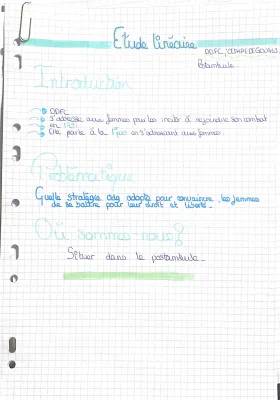 Etude linéaire
DDFC, OLYMPE DE GOUGES,
Postambule.
Introduction
DDFC
S'adresse aux femmes pour les inciter à rejoindre son combat
en 1791
Elle parle à la 1ère en s'adressant aux femmes.
Problématique
Quelle stratégie odg adopte pour convaincre les femmes
de se battre pour leur droit et liberté.
Où sommes-nous?
Situer dans le postambule.